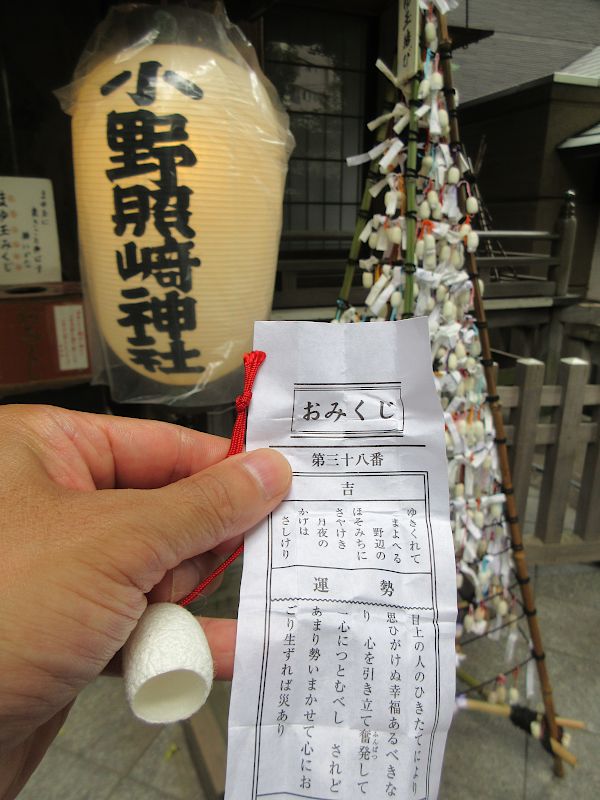 小野照崎神社
まゆ玉みくじ
おみくじ
第三十八番
吉
ゆきくれて
まよへる
野辺の
ほそみちに
さやけき
月夜の
かげは
さしけり
運勢
目上の人のひきたてにより
思ひがけぬ幸福あるべきな
り 心を引き立て奮発して
ふんぱつ
一心につとむべし されど
あまり勢いまかせて心にお
ごり生ずれば災あり